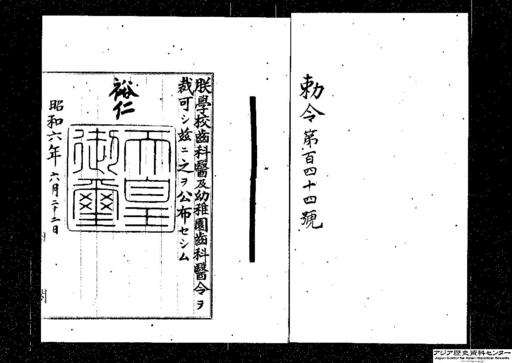 勅令第百四十四號
朕學校齒科醫及幼稚園齒科醫令ヲ
裁可シ玆ニ之ヲ公布セシム
裕仁
天皇
御璽
昭和六年六月二十二日
アジア歴史資料センター
Japan Center for Asian Historical Records